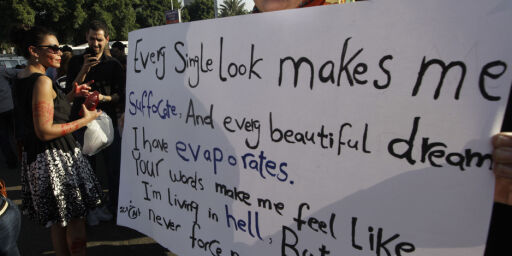 Every Single look makes me
Suffocate, And every beautiful dream
I have evaporates.
Your words make me feel like
I'm living in hell, But
never force